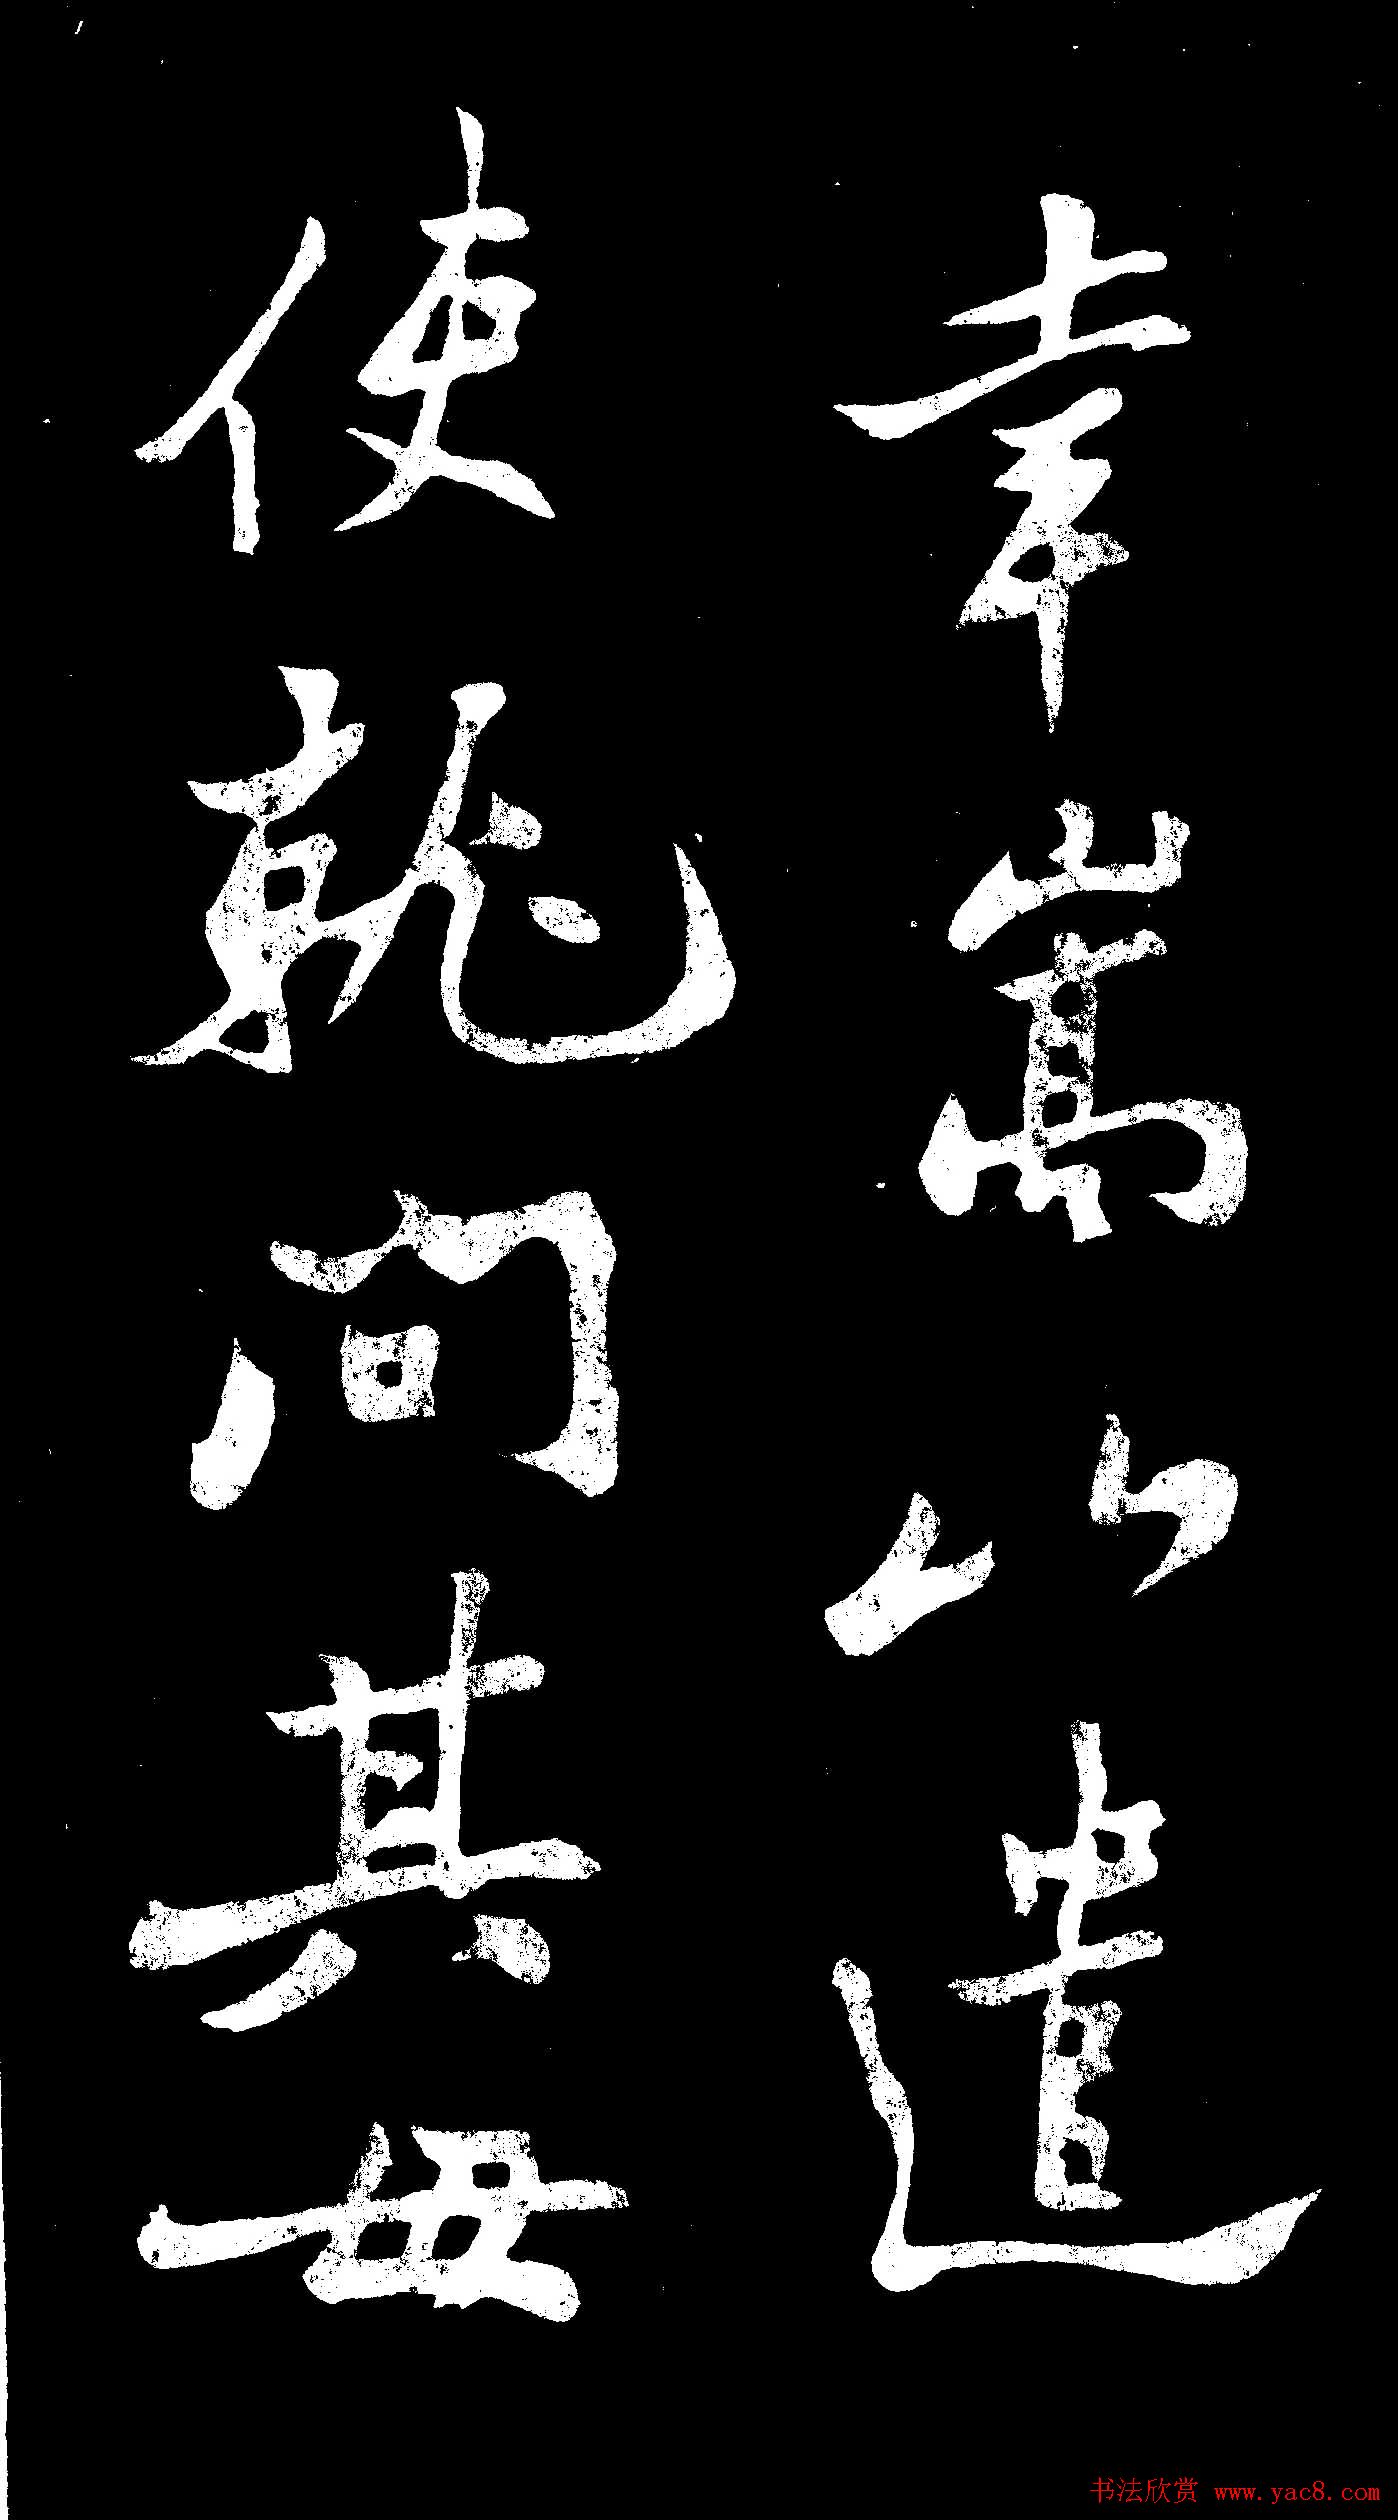 幸嵩山遣
使就问其母
书法欣赏 www.yac8.com